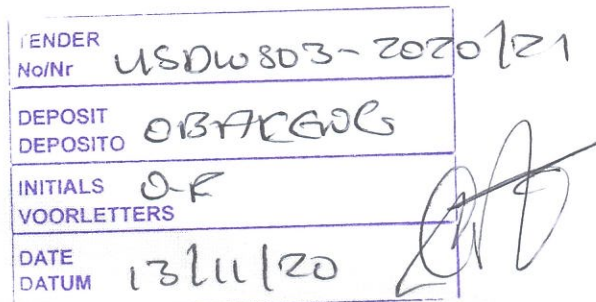 TENDER
No/Nr USDW803-2020/21
DEPOSIT
DEPOSITO OBAKENG
INITIALS O-K
VOORLETTERS
DATE
DATUM 13/11/20